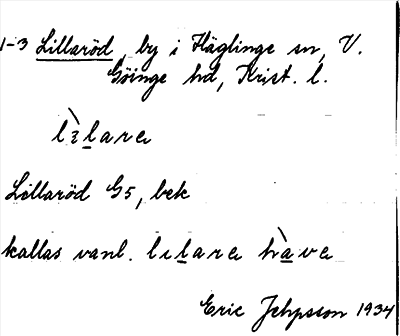 1-3 Lillaröd, by i Häglinge sn, V.
Göinge hd, Krist. l.
lìlare
Lillaröd G5, bek
kallas vanl. lilare hàve
Eric Jehpsson 1934